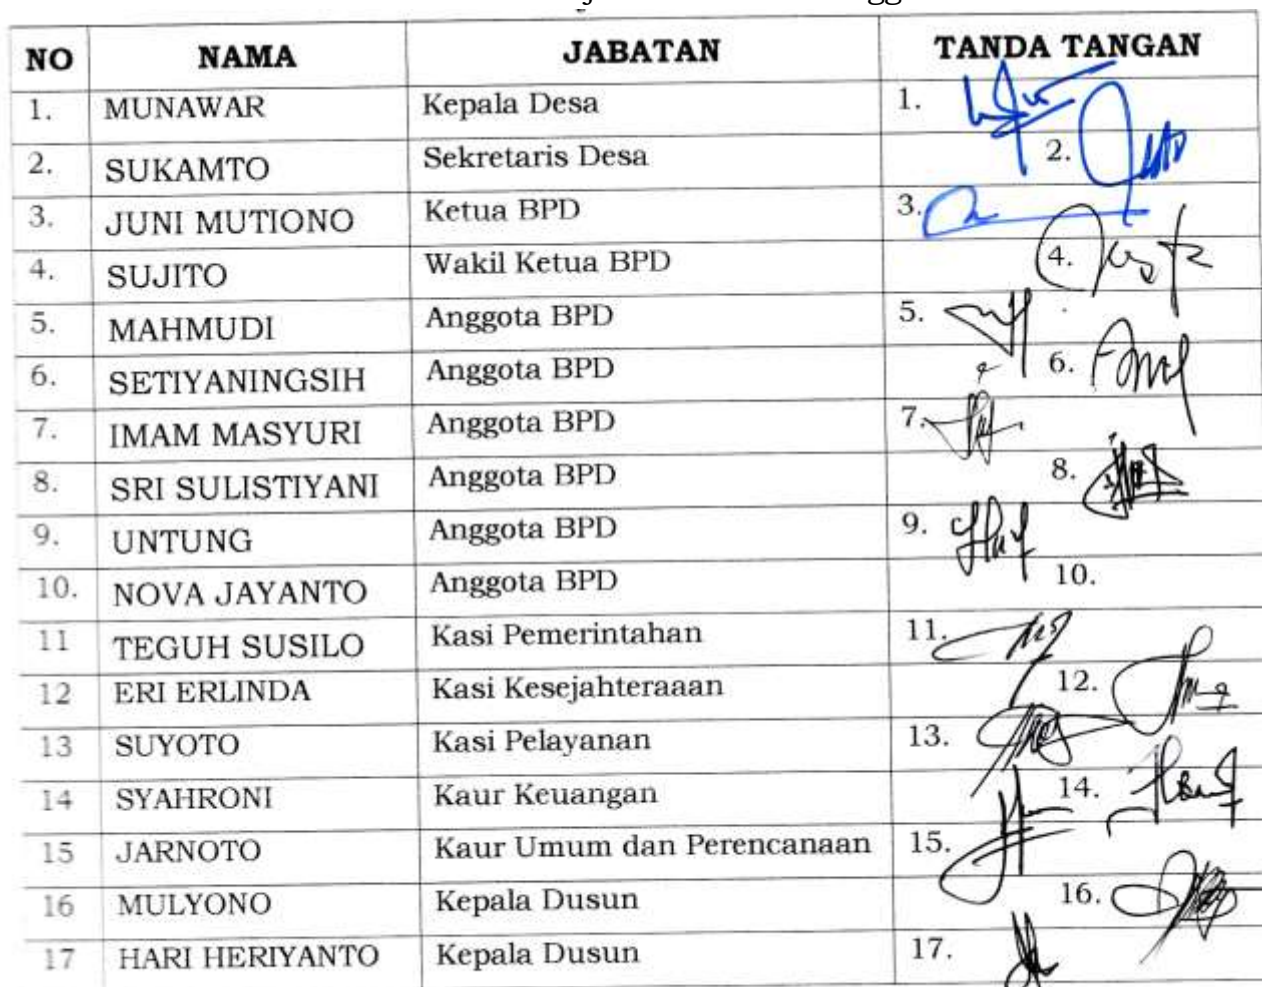 NO NAMA JABATAN TANDA TANGAN
1. MUNAWAR Kepala Desa 1.
2. SUKAMTO Sekretaris Desa 2.
3. JUNI MUTIONO Ketua BPD 3.
4. SUJITO Wakil Ketua BPD 4.
5. MAHMUDI Anggota BPD 5.
6. SETIYANINGSIH Anggota BPD 6.
7. IMAM MASYURI Anggota BPD 7.
8. SRI SULISTIYANI Anggota BPD 8.
9. UNTUNG Anggota BPD 9.
10. NOVA JAYANTO Anggota BPD 10.
11 TEGUH SUSILO Kasi Pemerintahan 11.
12 ERI ERLINDA Kasi Kesejahteraaan 12.
13 SUYOTO Kasi Pelayanan 13.
14 SYAHRONI Kaur Keuangan 14.
15 JARNOTO Kaur Umum dan Perencanaan 15.
16 MULYONO Kepala Dusun 16.
17 HARI HERIYANTO Kepala Dusun 17.